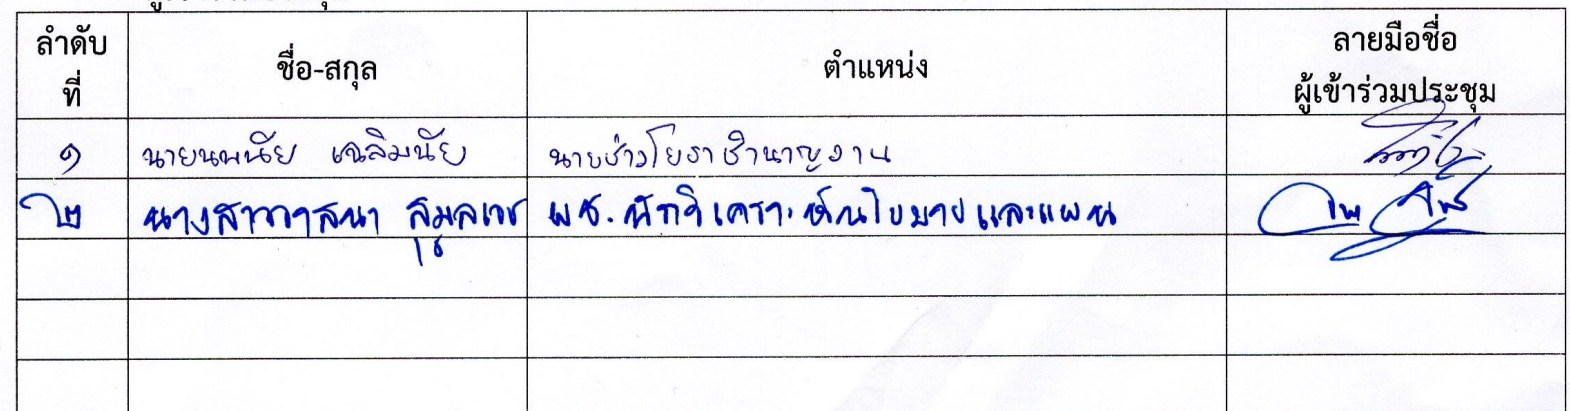 ลำดับ
ที่
ชื่อ-สกุล
ตำแหน่ง
ลายมือชื่อ
ผู้เข้าร่วมประชุม
๑ นายนพนัย เฉลิมนัย นายช่างโยธาชำนาญงาน
๒ นางสาววาสนา ผช.นักวิเคราะห์นโยบายและแผน